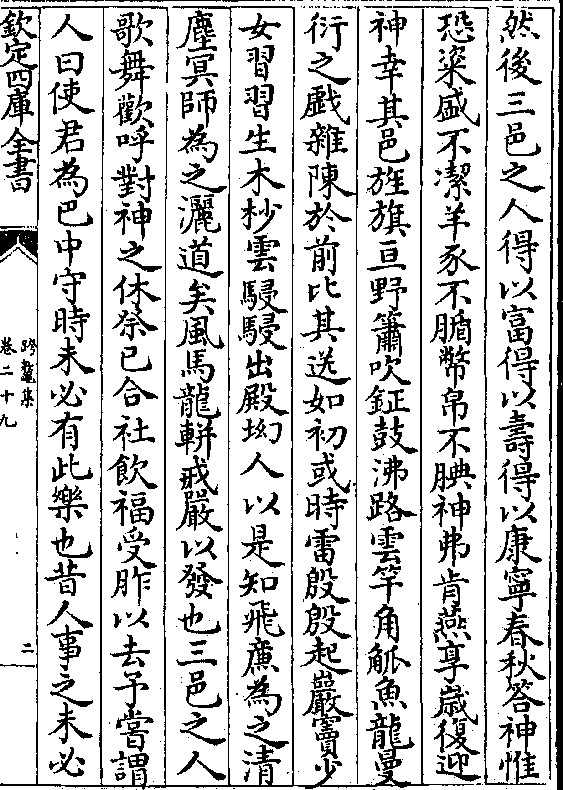 然後三邑之人得以富得以壽得以康寧春秋答神惟
恐粢盛不潔羊豕不腯幣帛不腆神弗肯燕享歳復迎
神幸其邑旌旗亘野簫吹鉦鼓沸路雲竿角觝魚龍曼
衍之戲雜陳於前比其送如初或時雷殷殷起巖竇少
女習習生木杪雲駸駸出殿坳人以是知飛廉為之清
塵冥師為之灑道矣風馬龍軿戒嚴以發也三邑之人
歌舞歡呼對神之休祭已合社飲福受胙以去予嘗謂
人曰使君為巴中守時未必有此樂也昔人事之未必
欽定四庫全書
跨鼇集
卷二十九
二